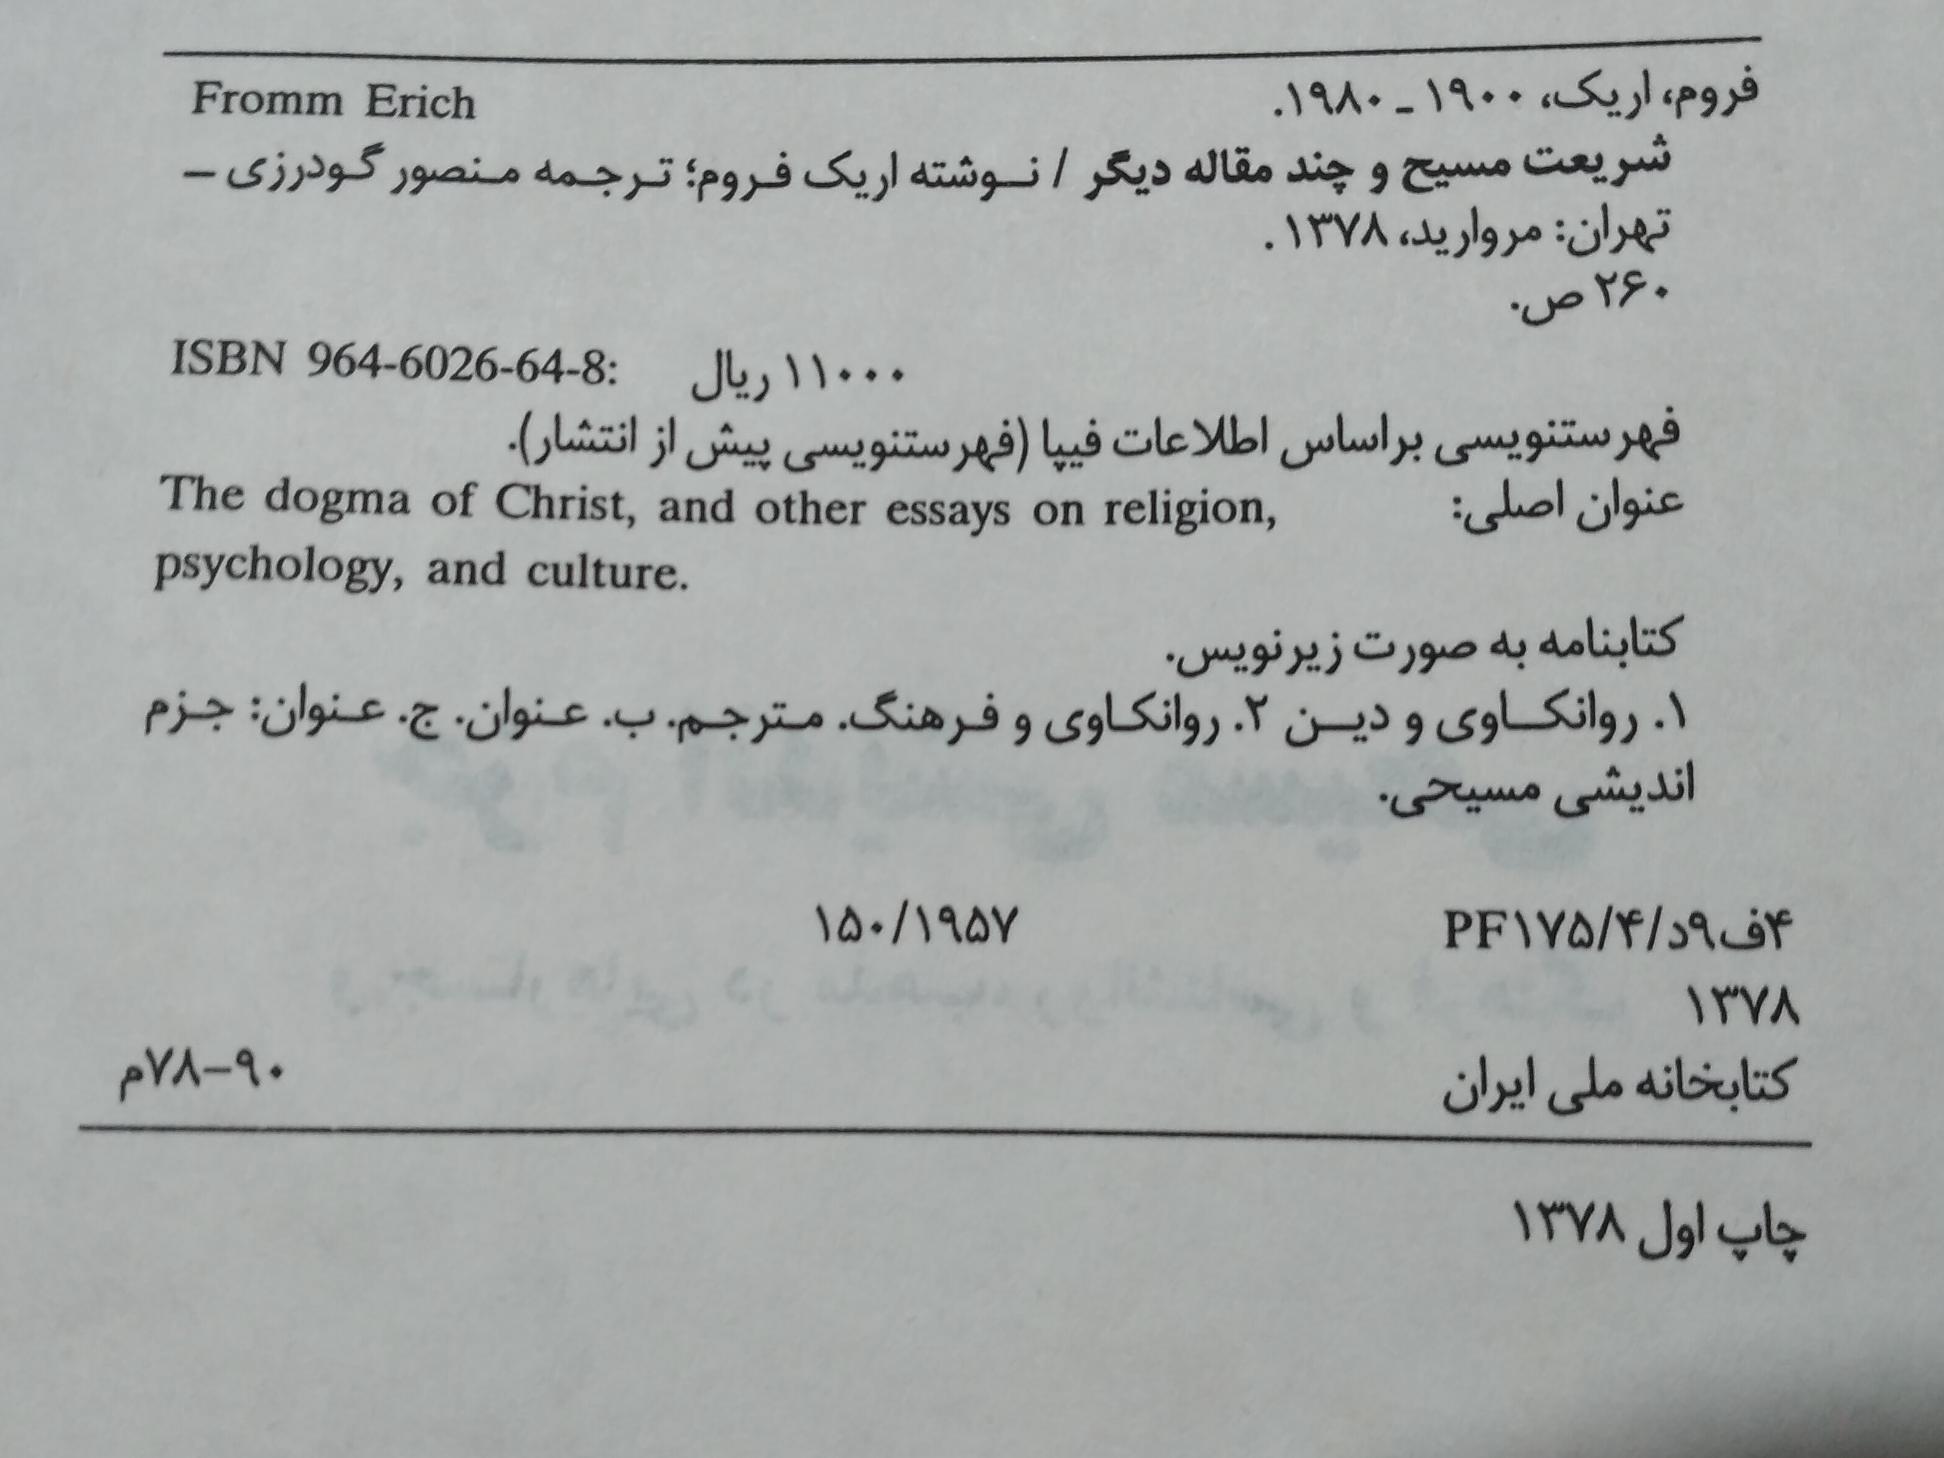 فروم، اریک، ۱۹۰۰ ـ ۱۹۸۰. Fromm Erich
شریعت مسیح و چند مقاله دیگر / نوشته اریک فروم؛ ترجمه منصور گودرزی –
تهران: مروارید، ۱۳۷۸.
۲۶۰ ص.
ISBN 964-6026-64-8: ۱۱۰۰۰ ریال
فهرستنویسی براساس اطلاعات فیپا (فهرستنویسی پیش از انتشار).
عنوان اصلی: The dogma of Christ, and other essays on religion,
psychology, and culture.
کتابنامه به صورت زیرنویس.
۱. روانکاوی و دین ۲. روانکاوی و فرهنگ. مترجم. ب. عنوان. ج. عنوان: جزم
اندیشی مسیحی.
۴ف۹د/۴/PF۱۷۵ ۱۵۰/۱۹۵۷
۱۳۷۸
کتابخانه ملی ایران ۹۰–۷۸م
چاپ اول ۱۳۷۸